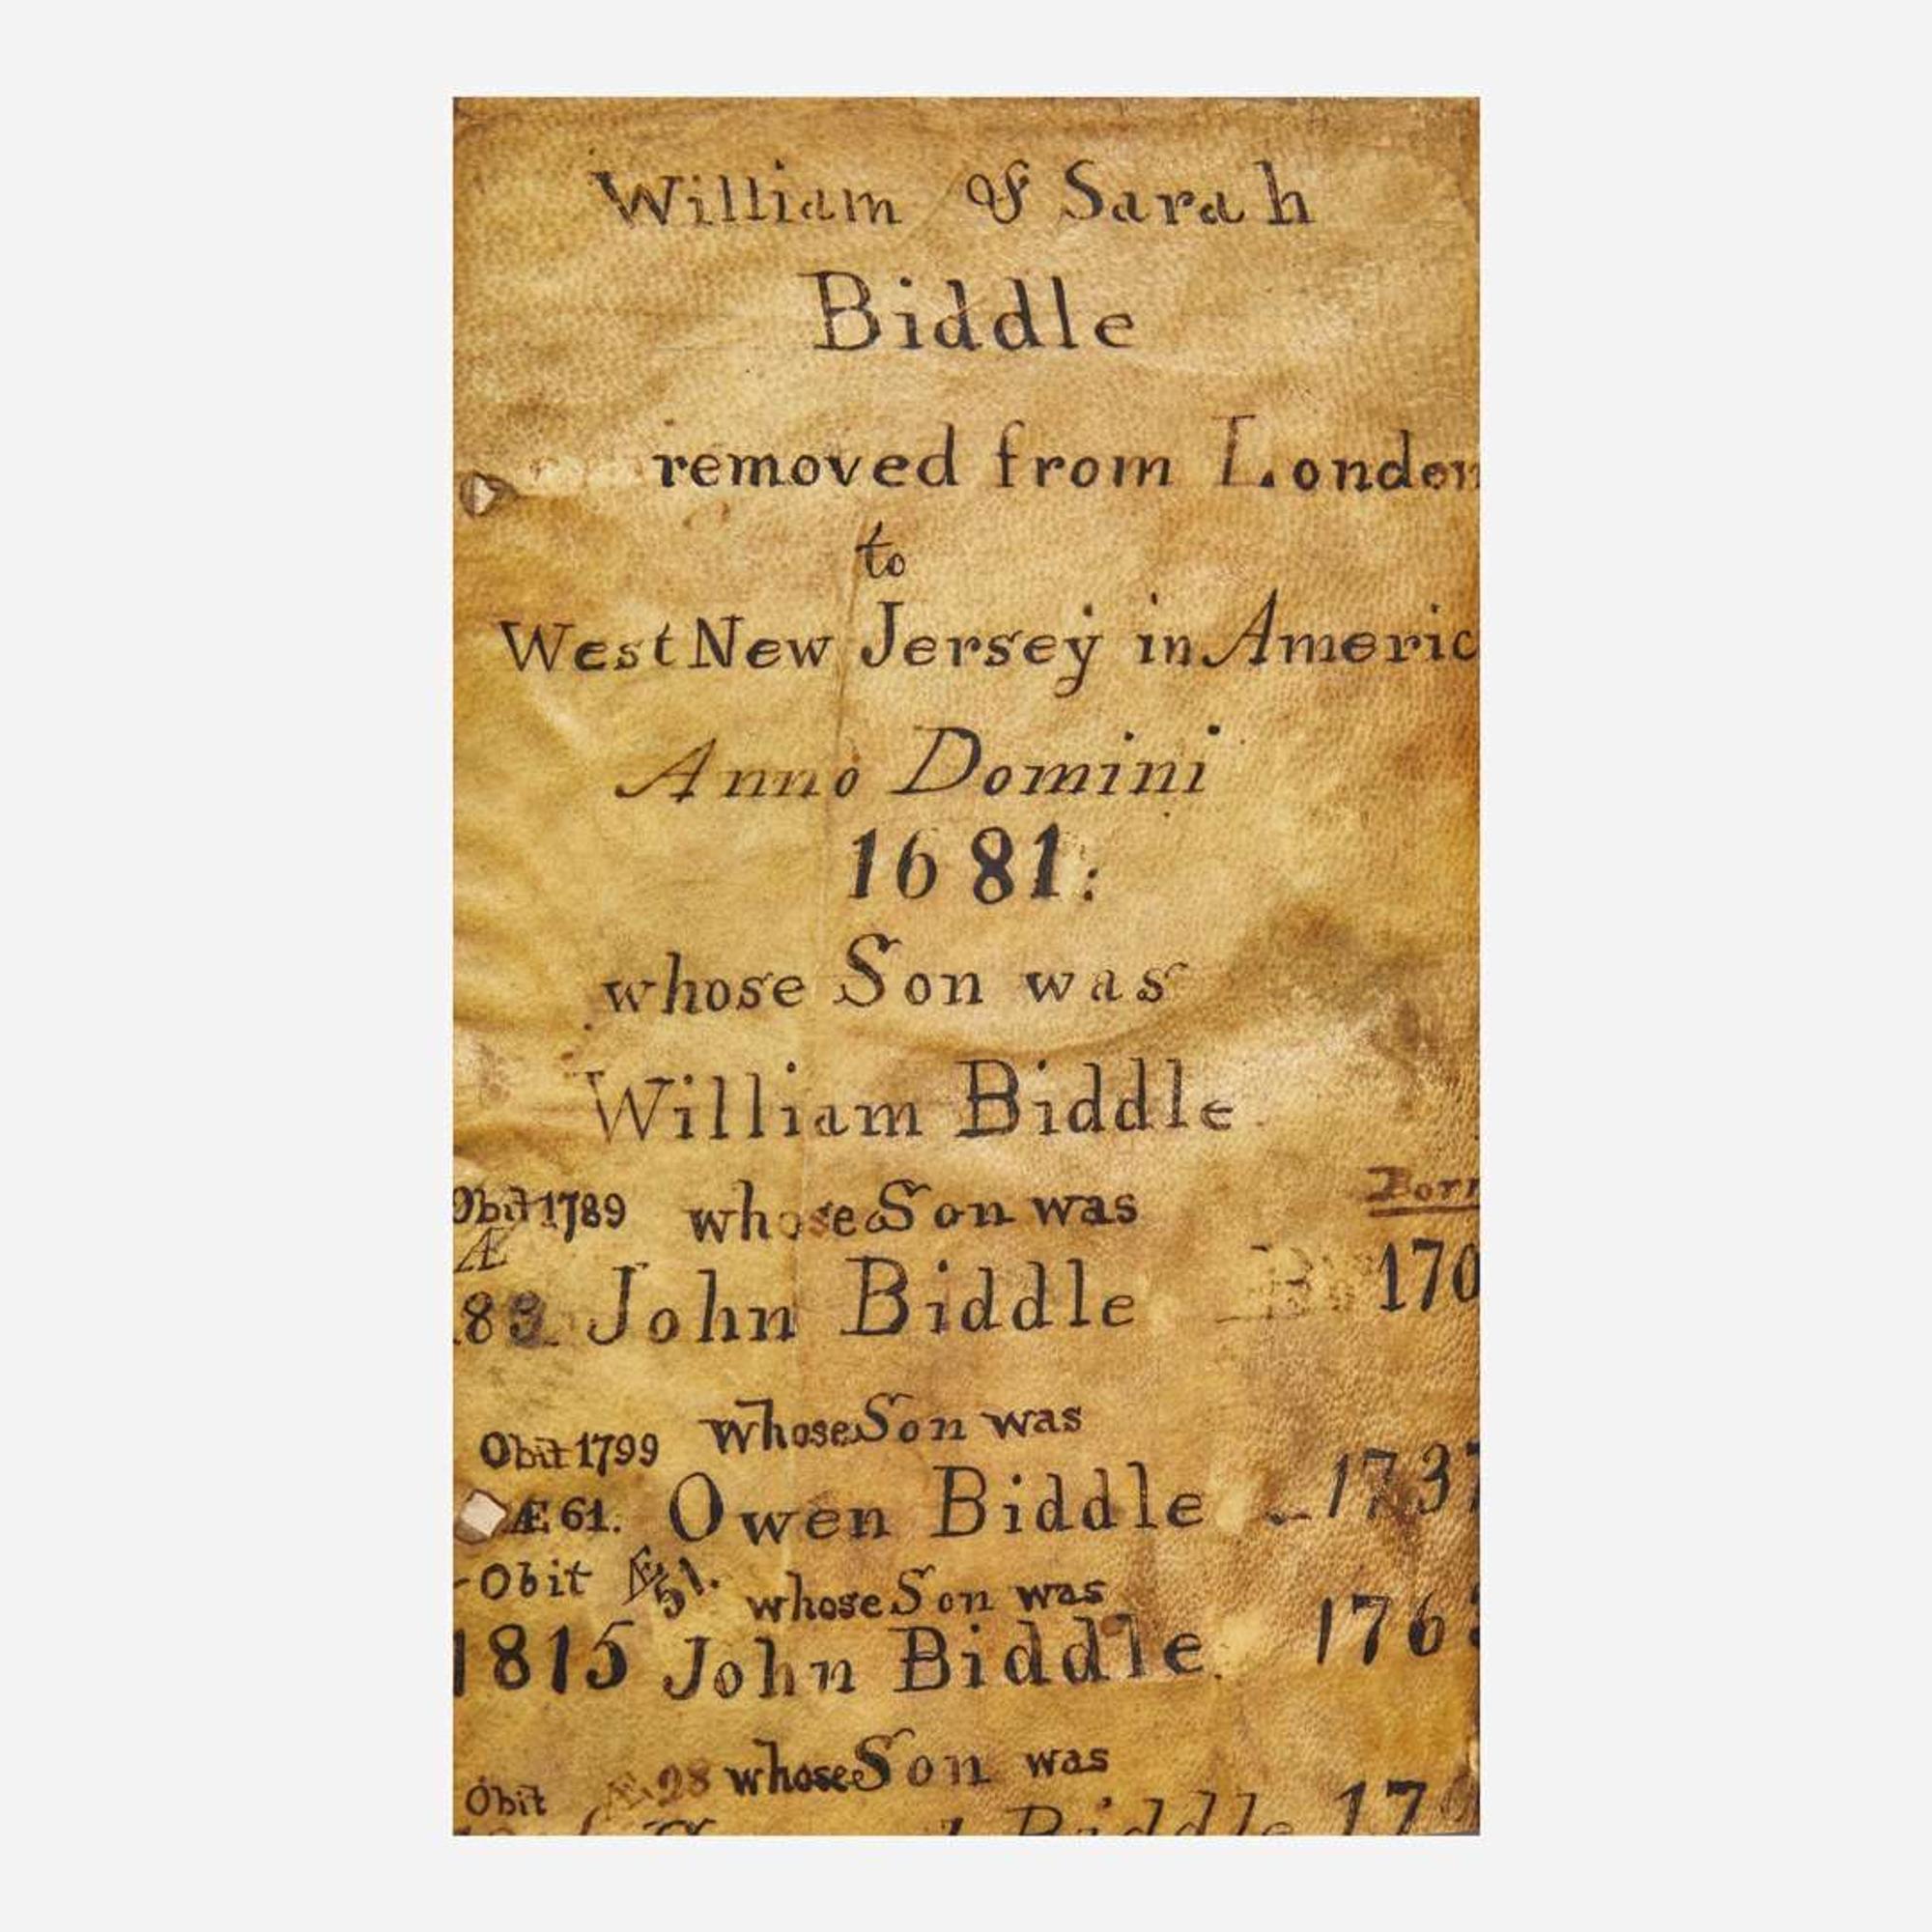 William & Sarah
Biddle
removed from London
to
West New Jersey in Americ
Anno Domini
1681:
whose Son was
William Biddle.
Obit 1789 whose Son was Born
Æ
83 John Biddle 170
Obit 1799 whose Son was
Æ 61. Owen Biddle 1737
Obit Æ 51. whose Son was
1815 John Biddle. 176
Obit Æ 28 whose Son was
Biddle 17